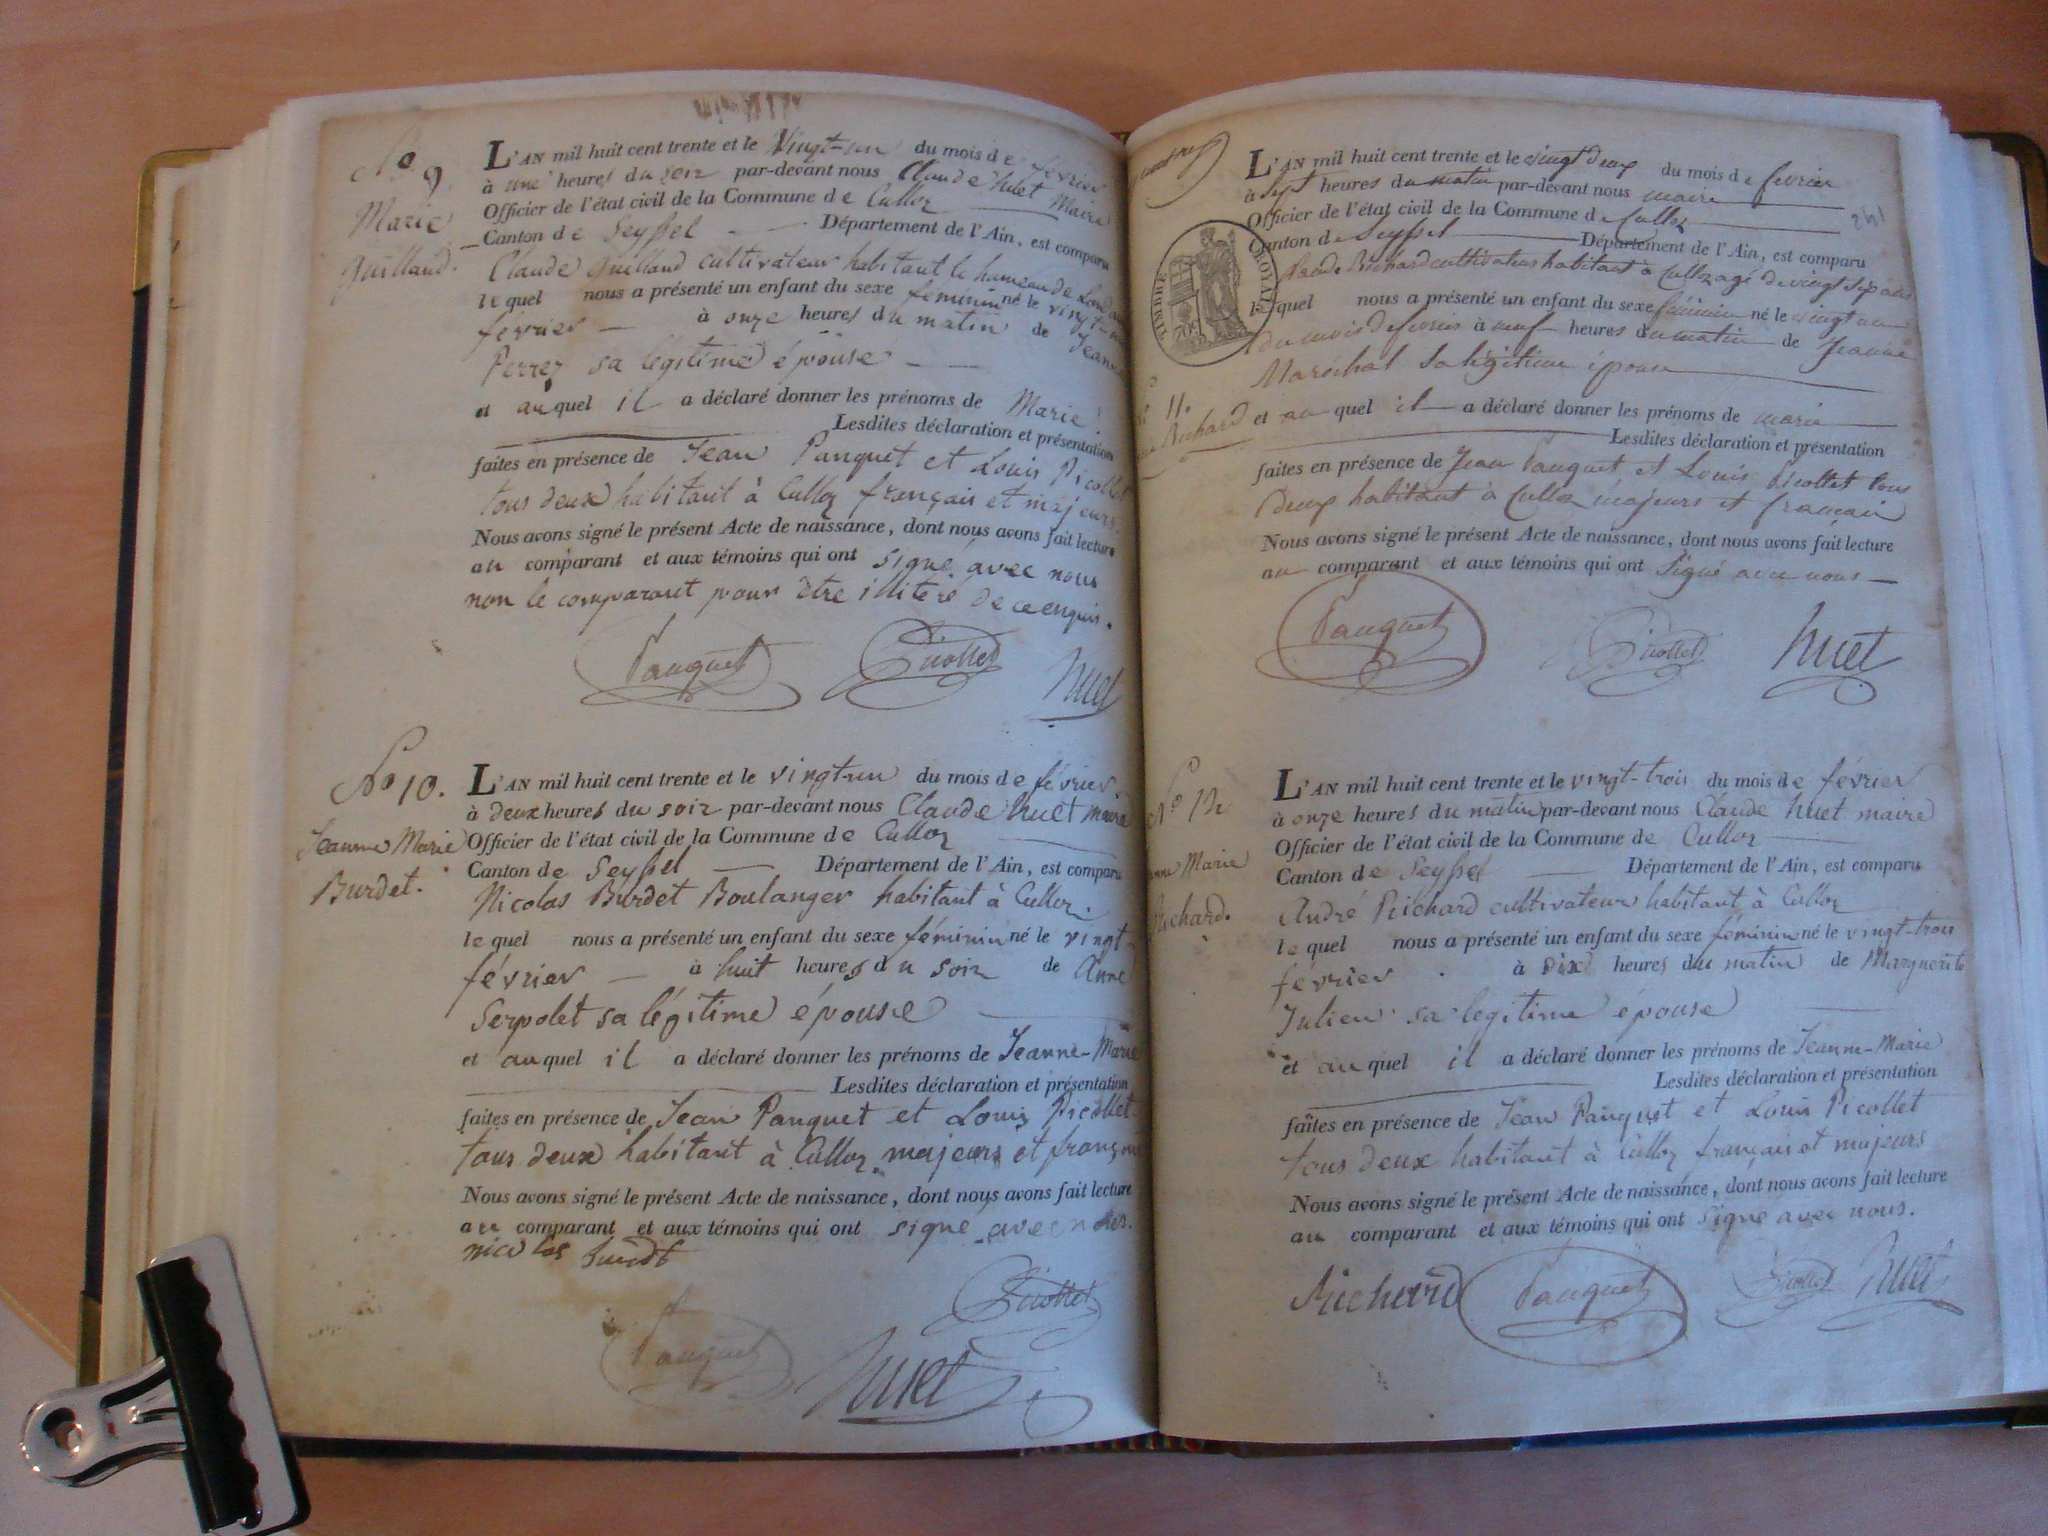 No 9.
Marie
Guilland.
L'AN mil huit cent trente et le Vingt-un du mois de février
à une heures du soir par-devant nous Claude huet Maire
Officier de l'état civil de la Commune de Culloz
Canton de Seyssel Département de l'Ain, est comparu
Claude Guilland cultivateur habitant le hameau de
lequel nous a présenté un enfant du sexe féminin né le vingt-un
février à onze heures du matin de Jeanne
Perrez sa légitime épouse
et auquel il a déclaré donner les prénoms de Marie
Lesdites déclaration et présentation
faites en présence de Jean Pauquet et Louis Picollet
tous deux habitant à Culloz français et majeurs.
Nous avons signé le présent Acte de naissance, dont nous avons fait lecture
au comparant et aux témoins qui ont signé avec nous
non le comparant pour être illitéré de ce enquis.
Pauquet Picollet huet
No 10.
Jeanne Marie
Burdet.
L'AN mil huit cent trente et le vingt-un du mois de février
à deux heures du soir par-devant nous Claude huet maire
Officier de l'état civil de la Commune de Culloz
Canton de Seyssel Département de l'Ain, est comparu
Nicolas Burdet Boulanger habitant à Culloz.
lequel nous a présenté un enfant du sexe féminin né le vingt
février à huit heures du soir de Anne
Serpolet sa légitime épouse
et auquel il a déclaré donner les prénoms de Jeanne-Marie
Lesdites déclaration et présentation
faites en présence de Jean Pauquet et Louis Picollet
tous deux habitant à Culloz majeurs et français
Nous avons signé le présent Acte de naissance, dont nous avons fait lecture
au comparant et aux témoins qui ont signé avec nous.
nicolas burdet
Picollet
Pauquet huet
TIMBRE ROYAL
11.
Richard
L'AN mil huit cent trente et le vingt deux du mois de fevrier
à sept heures du matin par-devant nous maire
Officier de l'état civil de la Commune de Culloz
Canton de Seyssel Département de l'Ain, est comparu
Claude Richard cultivateur habitant à Culloz agé de vingt sept ans
lequel nous a présenté un enfant du sexe féminin né le vingt un
du mois de fevrier à neuf heures du matin de Jeanne
Maréchal sa légitime épouse
et au quel il a déclaré donner les prénoms de marie
Lesdites déclaration et présentation
faites en présence de Jean Pauquet et Louis Picollet tous
deux habitant à Culloz majeurs et francais
Nous avons signé le présent Acte de naissance, dont nous avons fait lecture
au comparant et aux témoins qui ont signé avec nous
Pauquet Picollet huet
No 12
Jeanne Marie
Richard.
L'AN mil huit cent trente et le vingt-trois du mois de février
à onze heures du matin par-devant nous Claude huet maire
Officier de l'état civil de la Commune de Culloz
Canton de Seyssel Département de l'Ain, est comparu
André Richard cultivateur habitant à Culloz
lequel nous a présenté un enfant du sexe féminin né le vingt-trois
février à dix heures du matin de Marguerite
Julien sa légitime épouse
et auquel il a déclaré donner les prénoms de Jeanne-Marie
Lesdites déclaration et présentation
faites en présence de Jean Pauquet et Louis Picollet
tous deux habitant à Culloz français et majeurs
Nous avons signé le présent Acte de naissance, dont nous avons fait lecture
au comparant et aux témoins qui ont signé avec nous.
Richard Pauquet Picollet huet